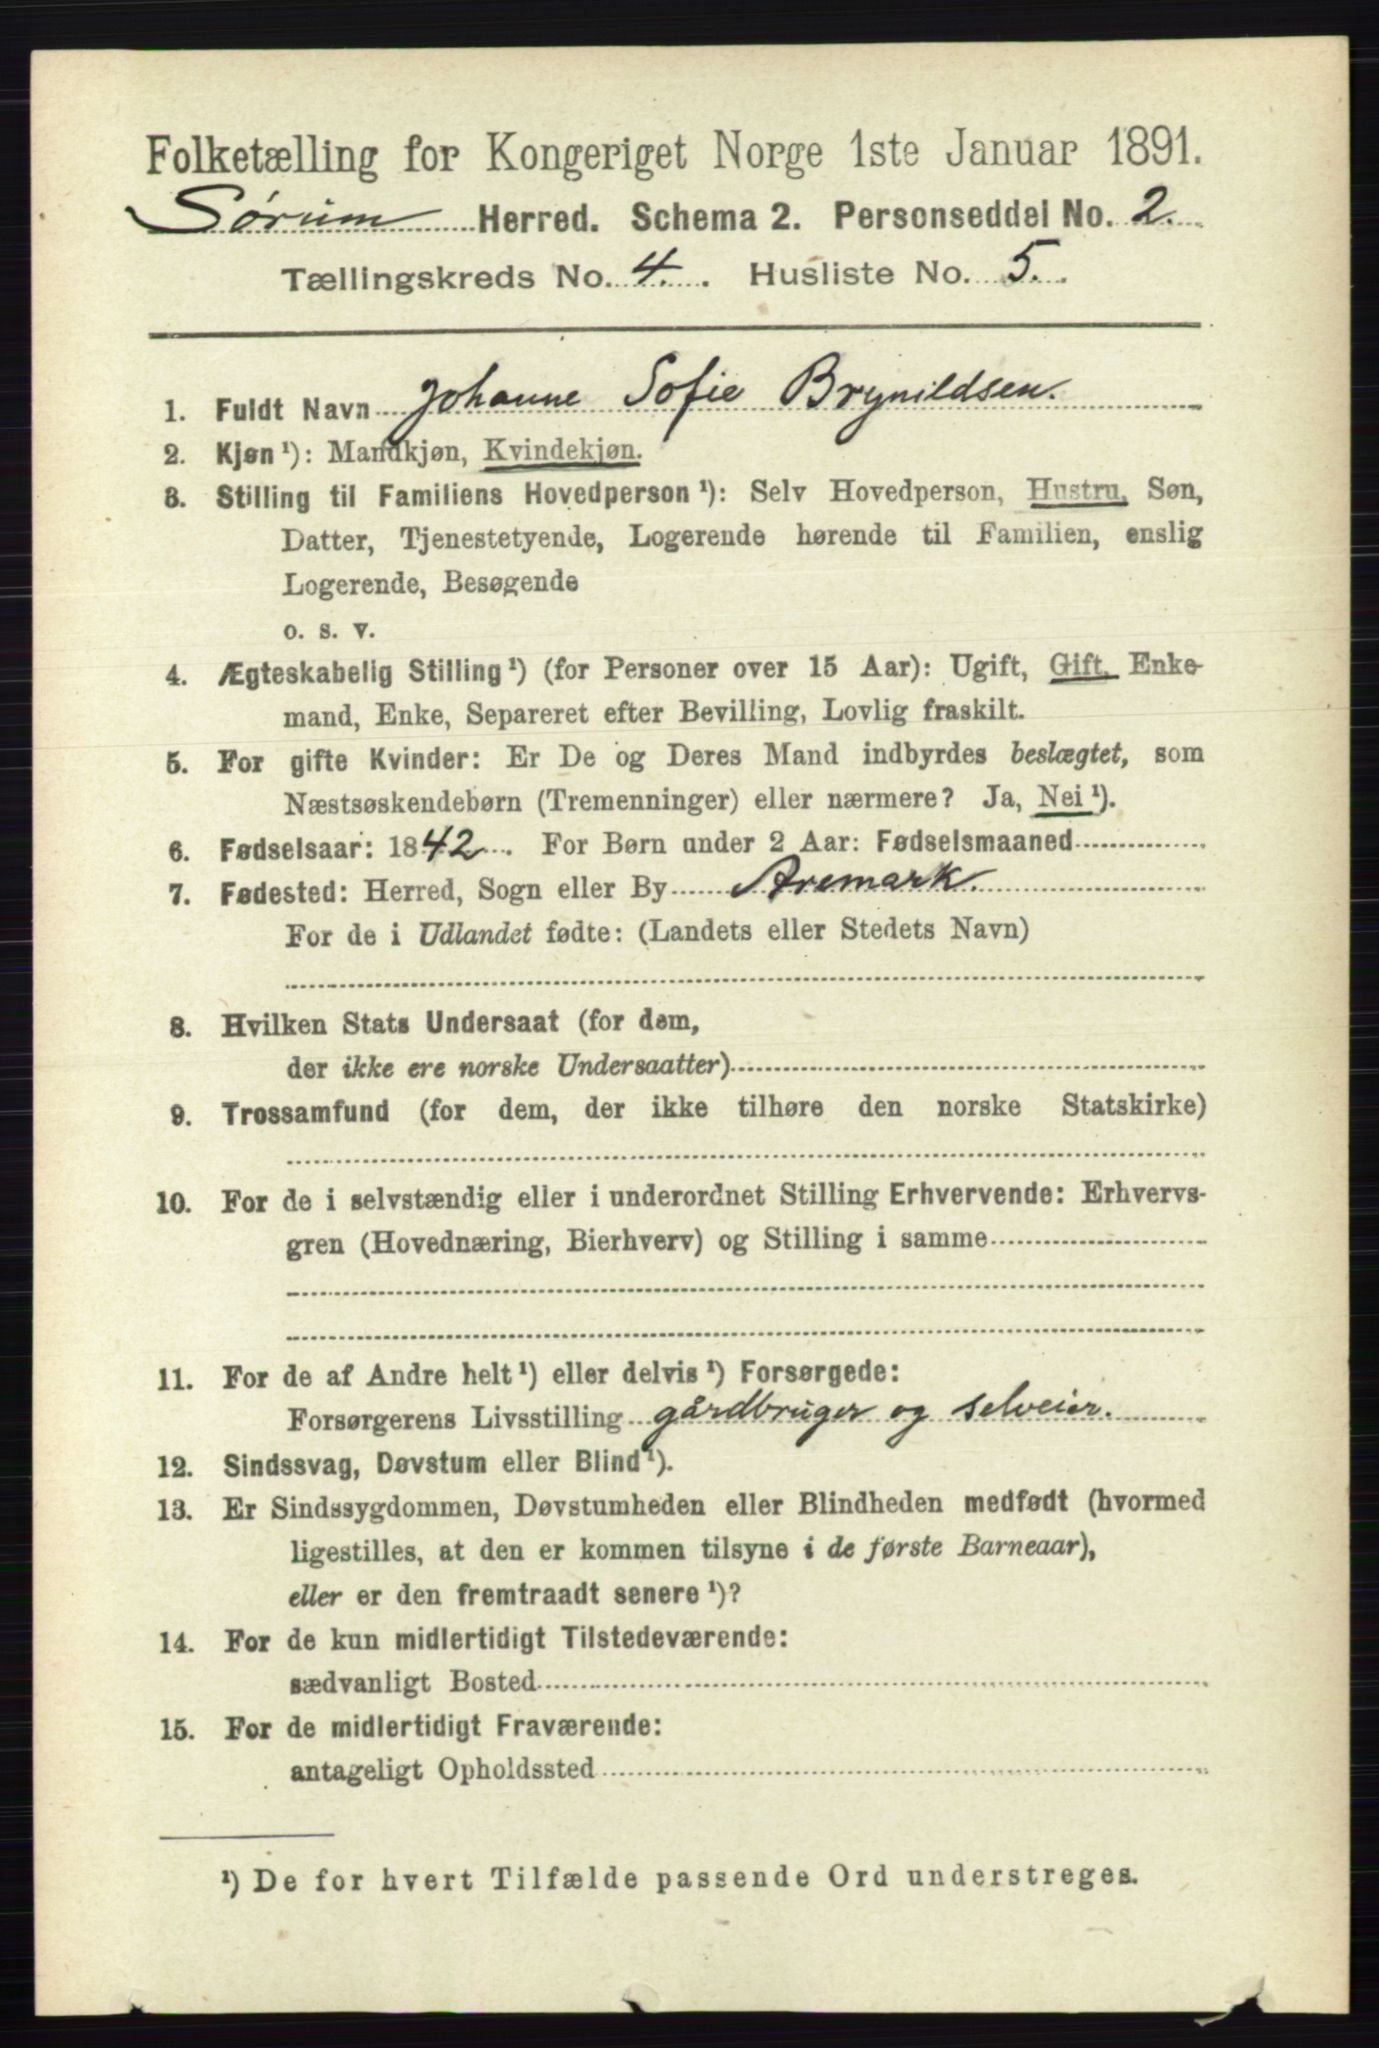 Folketælling for Kongeriget Norge 1ste Januar 1891.
Sørum Herred. Schema 2. Personseddel No. 2.
Tællingskreds No. 4. Husliste No. 5.
1. Fuldt Navn Johanne Sofie Brynildsen.
2. Kjøn ¹): Mandkjøn, Kvindekjøn.
3. Stilling til Familiens Hovedperson ¹): Selv Hovedperson, Hustru, Søn,
Datter, Tjenestetyende, Logerende hørende til Familien, enslig
Logerende, Besøgende
o. s. v.
4. Ægteskabelig Stilling ¹) (for Personer over 15 Aar): Ugift, Gift, Enke-
mand, Enke, Separeret efter Bevilling, Lovlig fraskilt.
5. For gifte Kvinder: Er De og Deres Mand indbyrdes beslægtet, som
Næstsøskendebørn (Tremenninger) eller nærmere? Ja, Nei ¹).
6. Fødselsaar: 1842. For Børn under 2 Aar: Fødselsmaaned
7. Fødested: Herred, Sogn eller By Aremark.
For de i Udlandet fødte: (Landets eller Stedets Navn)
8. Hvilken Stats Undersaat (for dem,
der ikke ere norske Undersaatter)
9. Trossamfund (for dem, der ikke tilhøre den norske Statskirke)
10. For de i selvstændig eller i underordnet Stilling Erhvervende: Erhvervs-
gren (Hovednæring, Bierhverv) og Stilling i samme
11. For de af Andre helt ¹) eller delvis ¹) Forsørgede:
Forsørgerens Livsstilling gårdbruger og selveier.
12. Sindssvag, Døvstum eller Blind ¹).
13. Er Sindssygdommen, Døvstumheden eller Blindheden medfødt (hvormed
ligestilles, at den er kommen tilsyne i de første Barneaar),
eller er den fremtraadt senere ¹)?
14. For de kun midlertidigt Tilstedeværende:
sædvanligt Bosted
15. For de midlertidigt Fraværende:
antageligt Opholdssted
¹) De for hvert Tilfælde passende Ord understreges.